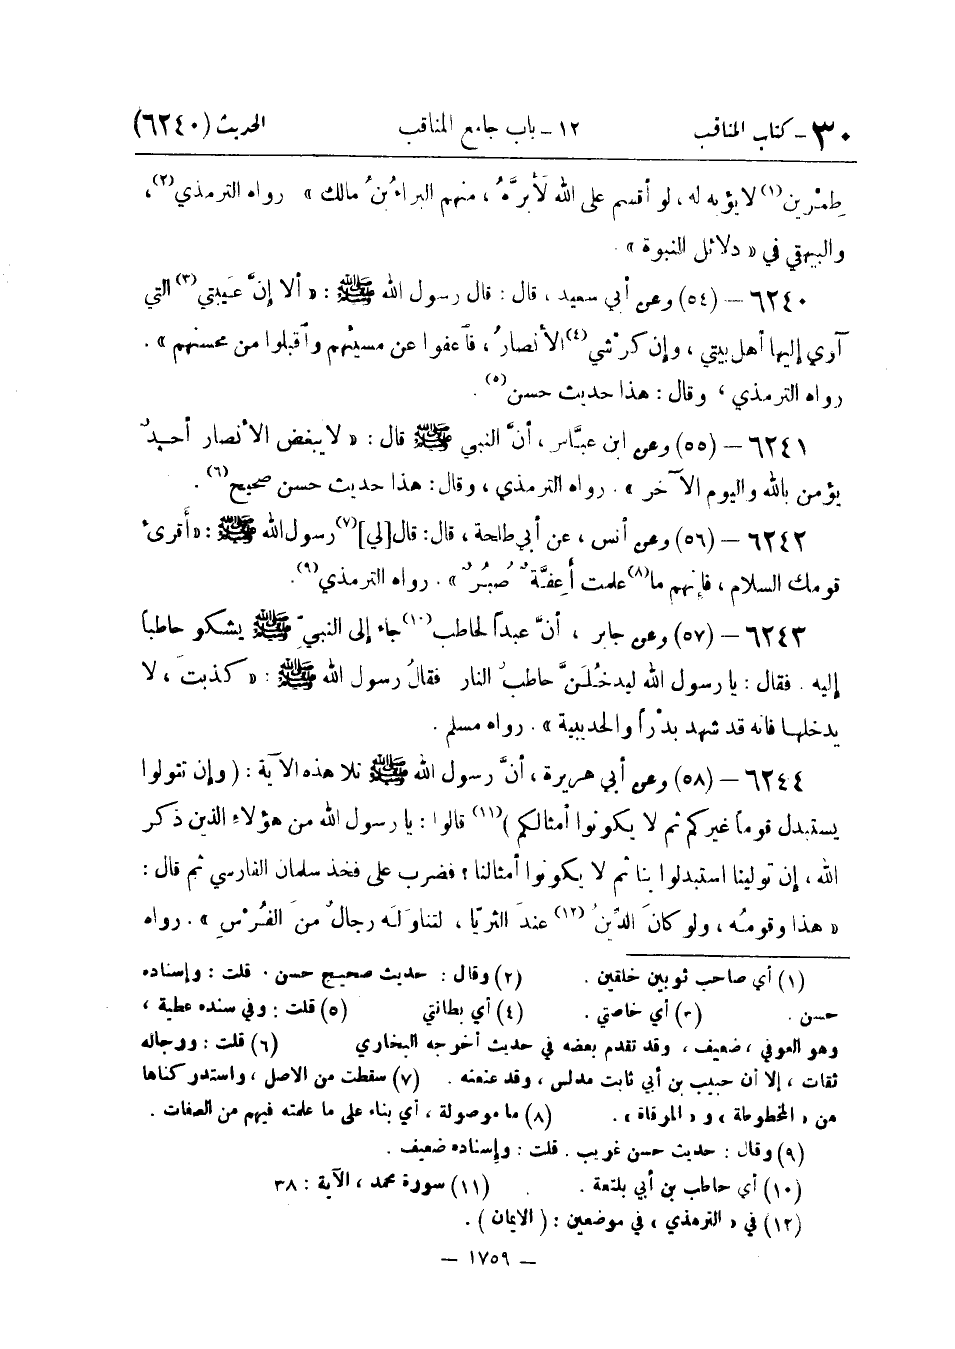 ٣٠ - كتاب المناقب ١٢ - باب جامع المناقب الحديث (٦٢٤٠)
طِمْرين(١) لا يؤبه له ، لو أقسم على الله لَأَبرَّهُ ، منهم البراءُ بنُ مالك » رواه الترمذي(٢) ،
والبيهقي في « دلائل النبوة » .
٦٢٤٠ – (٥٤) وعن أبي سعيد ، قال : قال رسول الله ﷺ : « ألا إنَّ عَيبتي(٣) التي
آوي إليها أهل بيتي ، وإن كَرْشي(٤) الأنصارُ ، فآعفوا عن مسيئهم وآقبلوا من محسنهم » .
رواه الترمذي ، وقال : هذا حديث حسن(٥) .
٦٢٤١ – (٥٥) وعن ابن عبَّاس ، أنَّ النبي ﷺ قال : « لا يبغض الأنصار أحدٌ
يؤمن بالله واليوم الآخر » . رواه الترمذي ، وقال : هذا حديث حسن صحيح(٦) .
٦٢٤٢ – (٥٦) وعن أنس ، عن أبي طلحة ، قال : قال [لي](٧) رسول الله ﷺ : « أَقرىء
قومك السلام ، فإنهم ما(٨) علمت أَعِفَّةٌ صُبُرٌ » . رواه الترمذي(٩) .
٦٢٤٣ – (٥٧) وعن جابر ، أنَّ عبداً لحاطب(١٠) جاء إلى النبيِّ ﷺ يشكو حاطباً
إليه . فقال : يا رسول الله ليدخُلَنَّ حاطبُ النار فقالُ رسول الله ﷺ : « كذبتَ ، لا
يدخلها فانه قد شهد بدْراً والحديبية » . رواه مسلم .
٦٢٤٤ – (٥٨) وعن أبي هريرة ، أنَّ رسول الله ﷺ تلا هذه الآية : ( وإن تتولوا
يستبدل قوماً غيركم ثم لا يكونوا أمثالكم )(١١) قالوا : يا رسول الله من هؤلاء الذين ذكر
الله ، إن تولينا استبدلوا بنا ثم لا يكونوا أمثالنا ؟ فضرب على فخذ سلمان الفارسي ثم قال :
« هذا وقومُه ، ولو كانَ الدِّينُ (١٢) عندَ الثريّا ، لتناوَلَه رجالٌ منَ الفُرْسِ » . رواه
(١) أي صاحب ثوبين خلقين . (٢) وقال : حديث صحيح حسن . قلت : وإسناده
حسن . (٣) أي خاصتي . (٤) أي بطانتي (٥) قلت : وفي سنده عطية ،
وهو العوفي ، ضعيف ، وقد تقدم بعضه في حديث أخرجه البخاري (٦) قلت : ورجاله
ثقات ، إلا أن حبيب بن أبي ثابت مدلس ، وقد عنعنه . (٧) سقطت من الاصل ، واستدركناها
من « المخطوطة » و « المرقاة » . (٨) ما موصولة ، أي بناء على ما علمته فيهم من الصفات .
(٩) وقال : حديث حسن غريب . قلت : وإسناده ضعيف .
(١٠) أي حاطب بن أبي بلتعة . (١١) سورة محمد ، الآية : ٣٨
(١٢) في « الترمذي » في موضعين : ( الايمان ) .
– ١٧٥٩ –